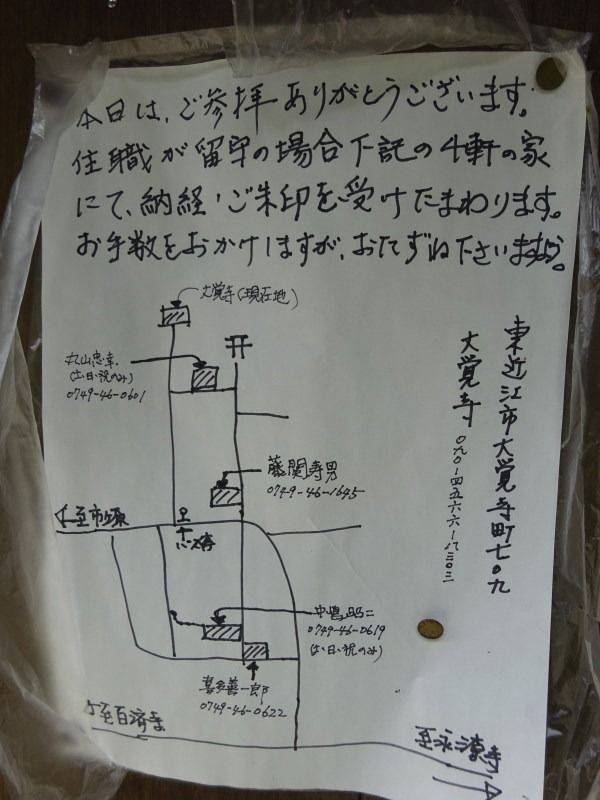 本日は、ご参拝ありがとうございます。
住職が留守の場合下記の4軒の家
にて、納経・ご朱印を受けたまわります。
お手数をおかけしますが、おたずね下さいませ。
大覚寺(現在地)
丸山忠幸
(土・日・祝のみ)
0749-46-0601
藤関寿男
0749-46-1645
至市原
バス停
中嶋昭二
0749-46-0619
(土・日・祝のみ)
喜多善一郎
0749-46-0622
至百済寺
至永源寺
東近江市大覚寺町七〇九
大覚寺
〇九〇-四五六六-八三〇三